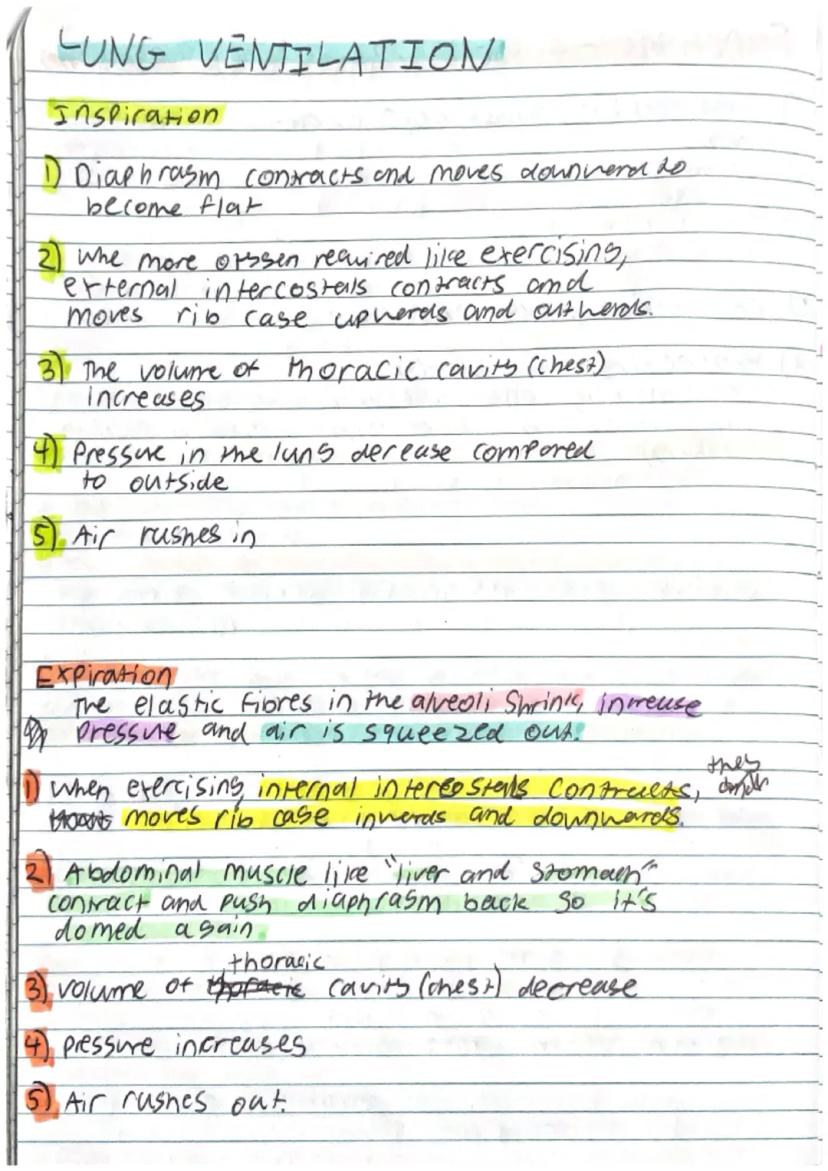 LUNG VENTILATION
Inspiration
1) Diaphragm contracts and moves downward to
become flat
2) Whe more oxygen required like exercising,
external intercostals contracts and
moves rib cage upwards and outwards.
3) The volume of thoracic cavity (chest)
increases
4) Pressure in the lung derease compared
to outside
5) Air rushes in
Expiration
The elastic fibres in the alveoli shrink, increase
pressure and air is squeezed out.
1) When exercising internal intercostals contracts,
moves rib cage inwards and downwards.
2) Abdominal muscle like "liver and stomach"
contract and push diaphragm back so it's
domed again.
thoracic
3) volume of cavity (chest) decrease
4) pressure increases
5) Air rushes out.